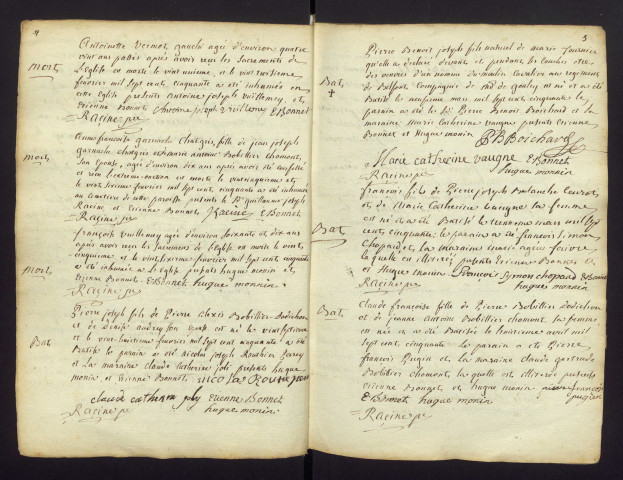 4
mort
Antoinette Vermot, gauché agée d'environ quatre
vint ans passés apres avoir reçu les Sacrements de
l'église est morte le vint unieme, et le vint troisieme
fevrier mil sept cent cinquante a été inhumée en
cette eglise presents antoine joseph Vuillemey, et
Etienne Bonnet, Antoine joseph Vuillemey E Bonnet
Racine ptre
mort
anne françoise garnache Chatgris, fille de jean joseph
garnache Chatgris et marie antoine Bobillier chomont,
son epouse, agée d'environ dix ans apres avoir été confessée
et reçu extreme onction est morte le vintcinquieme et
le vint sixieme fevrier mil sept cent cinquante a été inhumée
au cimetiere de cette paroisse presents le Sr guillaume joseph
Racine et Etienne Bonnet, Racine E Bonnet
Racine ptre
mort
françoise Vuillemey agée d'environ soixante et dix ans
apres avoir reçu les sacrements de l'église est morte le vint
cinquieme et le vint sixieme fevrier mil sept cent cinquante
a été inhumée a l'église presents hugue monin et
Etienne Bonnet. E Bonnet hugue monnin
Racine ptre
Bat
Pierre joseph fils de Pierre alexis Bobillier Dodichon
et de Denise audrey son epouse est né le vint septieme
et le vint huitieme fevrier mil sept cent cinquante a été
Batisé le parain a été nicolas joseph
et la maraine claude catherine joli presents hugue
monin, et Etienne Bonnet, nicolas
claude catherine joly Etienne Bonnet
Racine ptre hugue monin
5
Bat
Pierre Benoit joseph fils naturel de marie fournier
qu'elle a declaré devant et pendant les couches etre
des oeuvres d'un nommé du moulin Cavalier au regiment
de Belfort Compagnie de Mr de est né et a été
Batisé le neufieme mars mil sept cent cinquante le
parain a été le Sr Pierre Benoit Boichard et la
maraine marie Catherine vaugne presents etienne
Bonnet et hugue monin P B Boichard
Marie catherine vaugne E Bonnet
Racine ptre hugue monin
Bat
françois fils de Pierre joseph
et de Marie Catherine sa femme
est né et a été Batisé le mars mil sept
cent cinquante, le parain a été françois simon
Chopard, et la maraine marie agnes
laquelle est illitérée presents Etienne Bonnet
et hugue monin. françois symon chopard E Bonnet
Racine ptre hugues monin
Bat
Claude françoise fille de Pierre Bobillier Dodichon
et de jeanne antoine Bobillier chomont, sa femme
est née et a été Batisée le huitieme avril mil
sept cent, cinquante le parain a été Pierre
françois Pugin et la maraine claude gertrude
Bobillier Chomont, laquelle est illitérée presents
etienne Bonnet, et hugue monin pierre françois
E Bonnet hugue monin pugin
Racine ptre